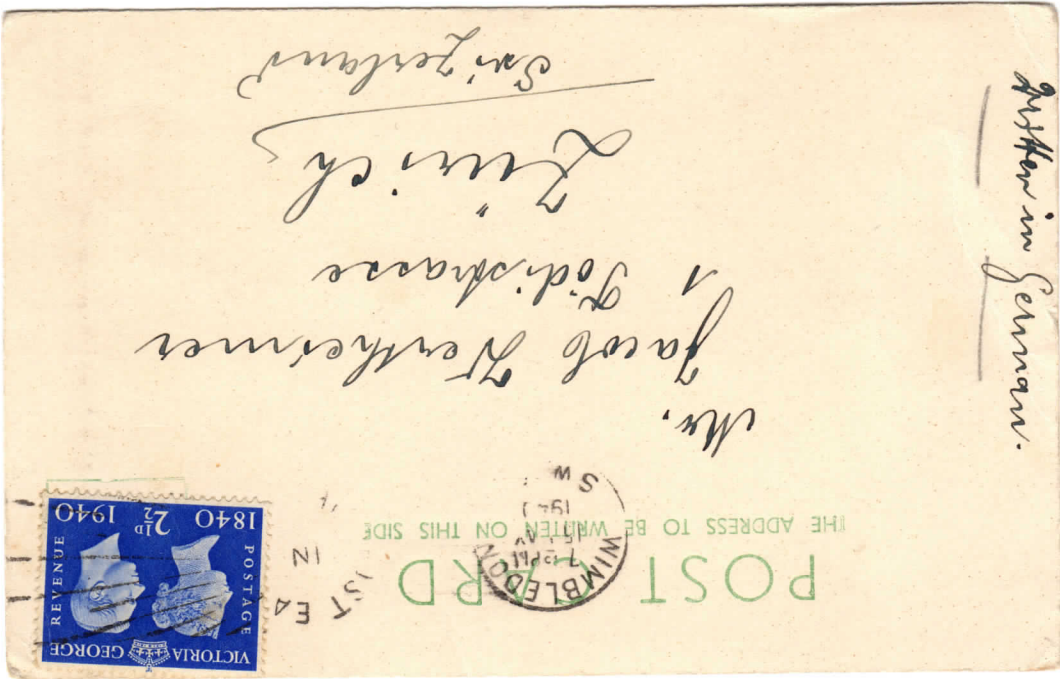 POST CARD
THE ADDRESS TO BE WRITTEN ON THIS SIDE
WIMBLEDON
7
15
194
S W
ST EA
IN
VICTORIA GEORGE
POSTAGE
REVENUE
1840 2½D 1940
Mr.
Jacob Wertheimer
1 Tödistrasse
Zürich
Swizerland
Written in German.